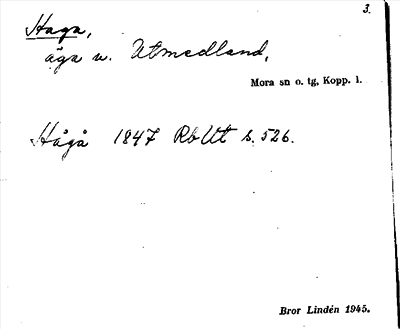 3.
Haga,
äga u. Utmedland,
Mora sn o. tg, Kopp. l.
Hågå 1847 RbUt s. 526.
Bror Lindén 1945.